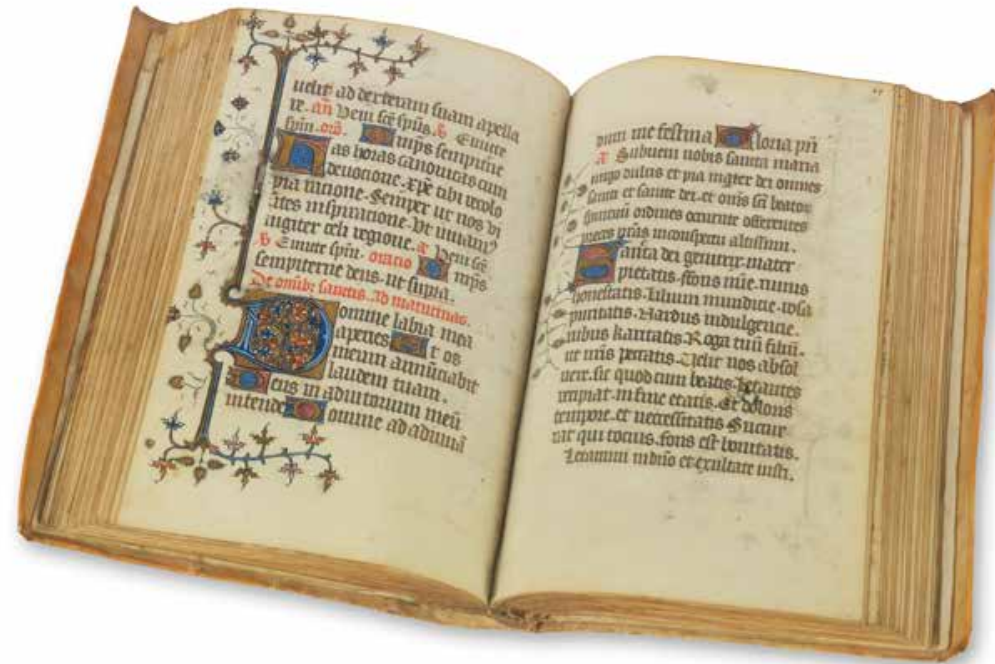 uelit ad dexteram suam apella
re. añ Veni sce spus. ꝟ Emitte
spm. oro. Omps sempitne
Has horas canonicas cum
deuocione. xpe tibi recolo
pia racione. Semper ut nos vi
inspiracione. Vt uiuam
iugiter celi regione. a Veni sce.
ꝟ Emitte spm. oracio Omps
sempiterne deus. ut supra.
De omibz sanctis. Ad matutinas.
Domine labia mea
aperies Et os
meum annuciabit
laudem tuam.
Deus in adiutorium meu
intende Domine ad adiuua
dum me festina Gloria pri
a Subueni nobis sancta maria
uirgo dulcis et pia mater dei omnes
sancti et sancte dei. et omis sci beator
spirituu ordines occurrite offerentes
preces inconspectu altissimi.
Sancta dei genitrix. mater
pietatis. fons uite. nimis
honestatis. Lilium mundicie. rosa
puritatis. Nardus indulgencie.
karitatis. Roga tuu filiu.
peccatis. Velit nos absol
uere. sic quod cum beatis. letantes
recipiat. in fine etatis. Et doloris
tempore. et necessitatis Sucur
rat qui tocius. fons est bonitatis.
Letamini in dno et exultate iusti.